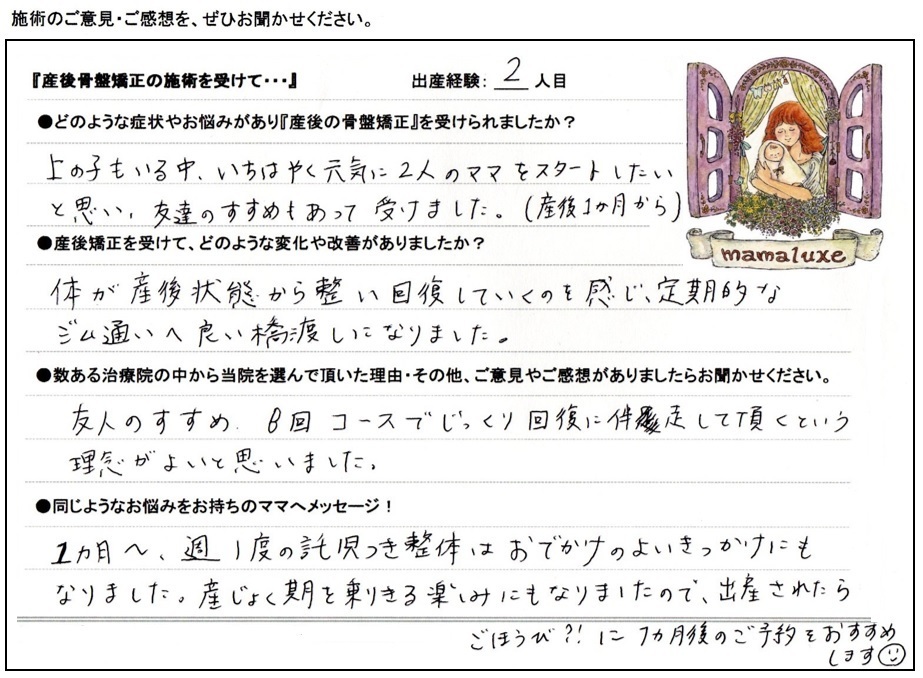 施術のご意見・ご感想を、ぜひお聞かせください。
『産後骨盤矯正の施術を受けて・・・』 出産経験: 2 人目
●どのような症状やお悩みがあり『産後の骨盤矯正』を受けられましたか？
上の子もいる中、いちはやく元気に2人のママをスタートしたい
と思い、友達のすすめもあって 受けました。(産後1か月から)
mamaluxe
●産後矯正を受けて、どのような変化や改善がありましたか？
体が産後状態から整い回復していくのを感じ、定期的な
ジム通いへ良い橋渡しになりました。
●数ある治療院の中から当院を選んで頂いた理由・その他、ご意見やご感想がありましたらお聞かせください。
友人のすすめ. 8回コースでじっくり回復に伴走して頂くという
理念がよいと思いました。
●同じようなお悩みをお持ちのママへメッセージ！
1ヵ月〜、週1度の託児つき整体はおでかけのよいきっかけにも
なりました。産じょく期を乗りきる楽しみにもなりましたので、出産されたら
ごほうび?! に 1ヵ月後のご予約をおすすめ
します